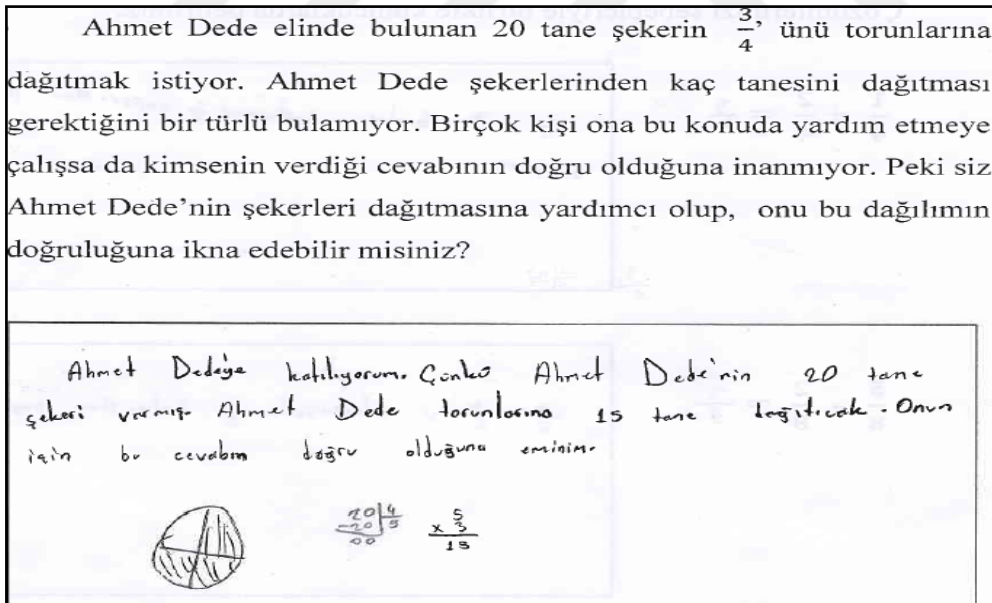 Ahmet Dede elinde bulunan 20 tane şekerin 3/4' ünü torunlarına
dağıtmak istiyor. Ahmet Dede şekerlerinden kaç tanesini dağıtması
gerektiğini bir türlü bulamıyor. Birçok kişi ona bu konuda yardım etmeye
çalışsa da kimsenin verdiği cevabının doğru olduğuna inanmıyor. Peki siz
Ahmet Dede'nin şekerleri dağıtmasına yardımcı olup, onu bu dağılımın
doğruluğuna ikna edebilir misiniz?
Ahmet Dede'ye katılıyorum. Çünkü Ahmet Dede'nin 20 tane
şekeri varmış. Ahmet Dede torunlarına 15 tane dağıtıcak. Onun
için bu cevabın doğru olduğuna eminim.
20 4 5
-20 5 x 3
00 15